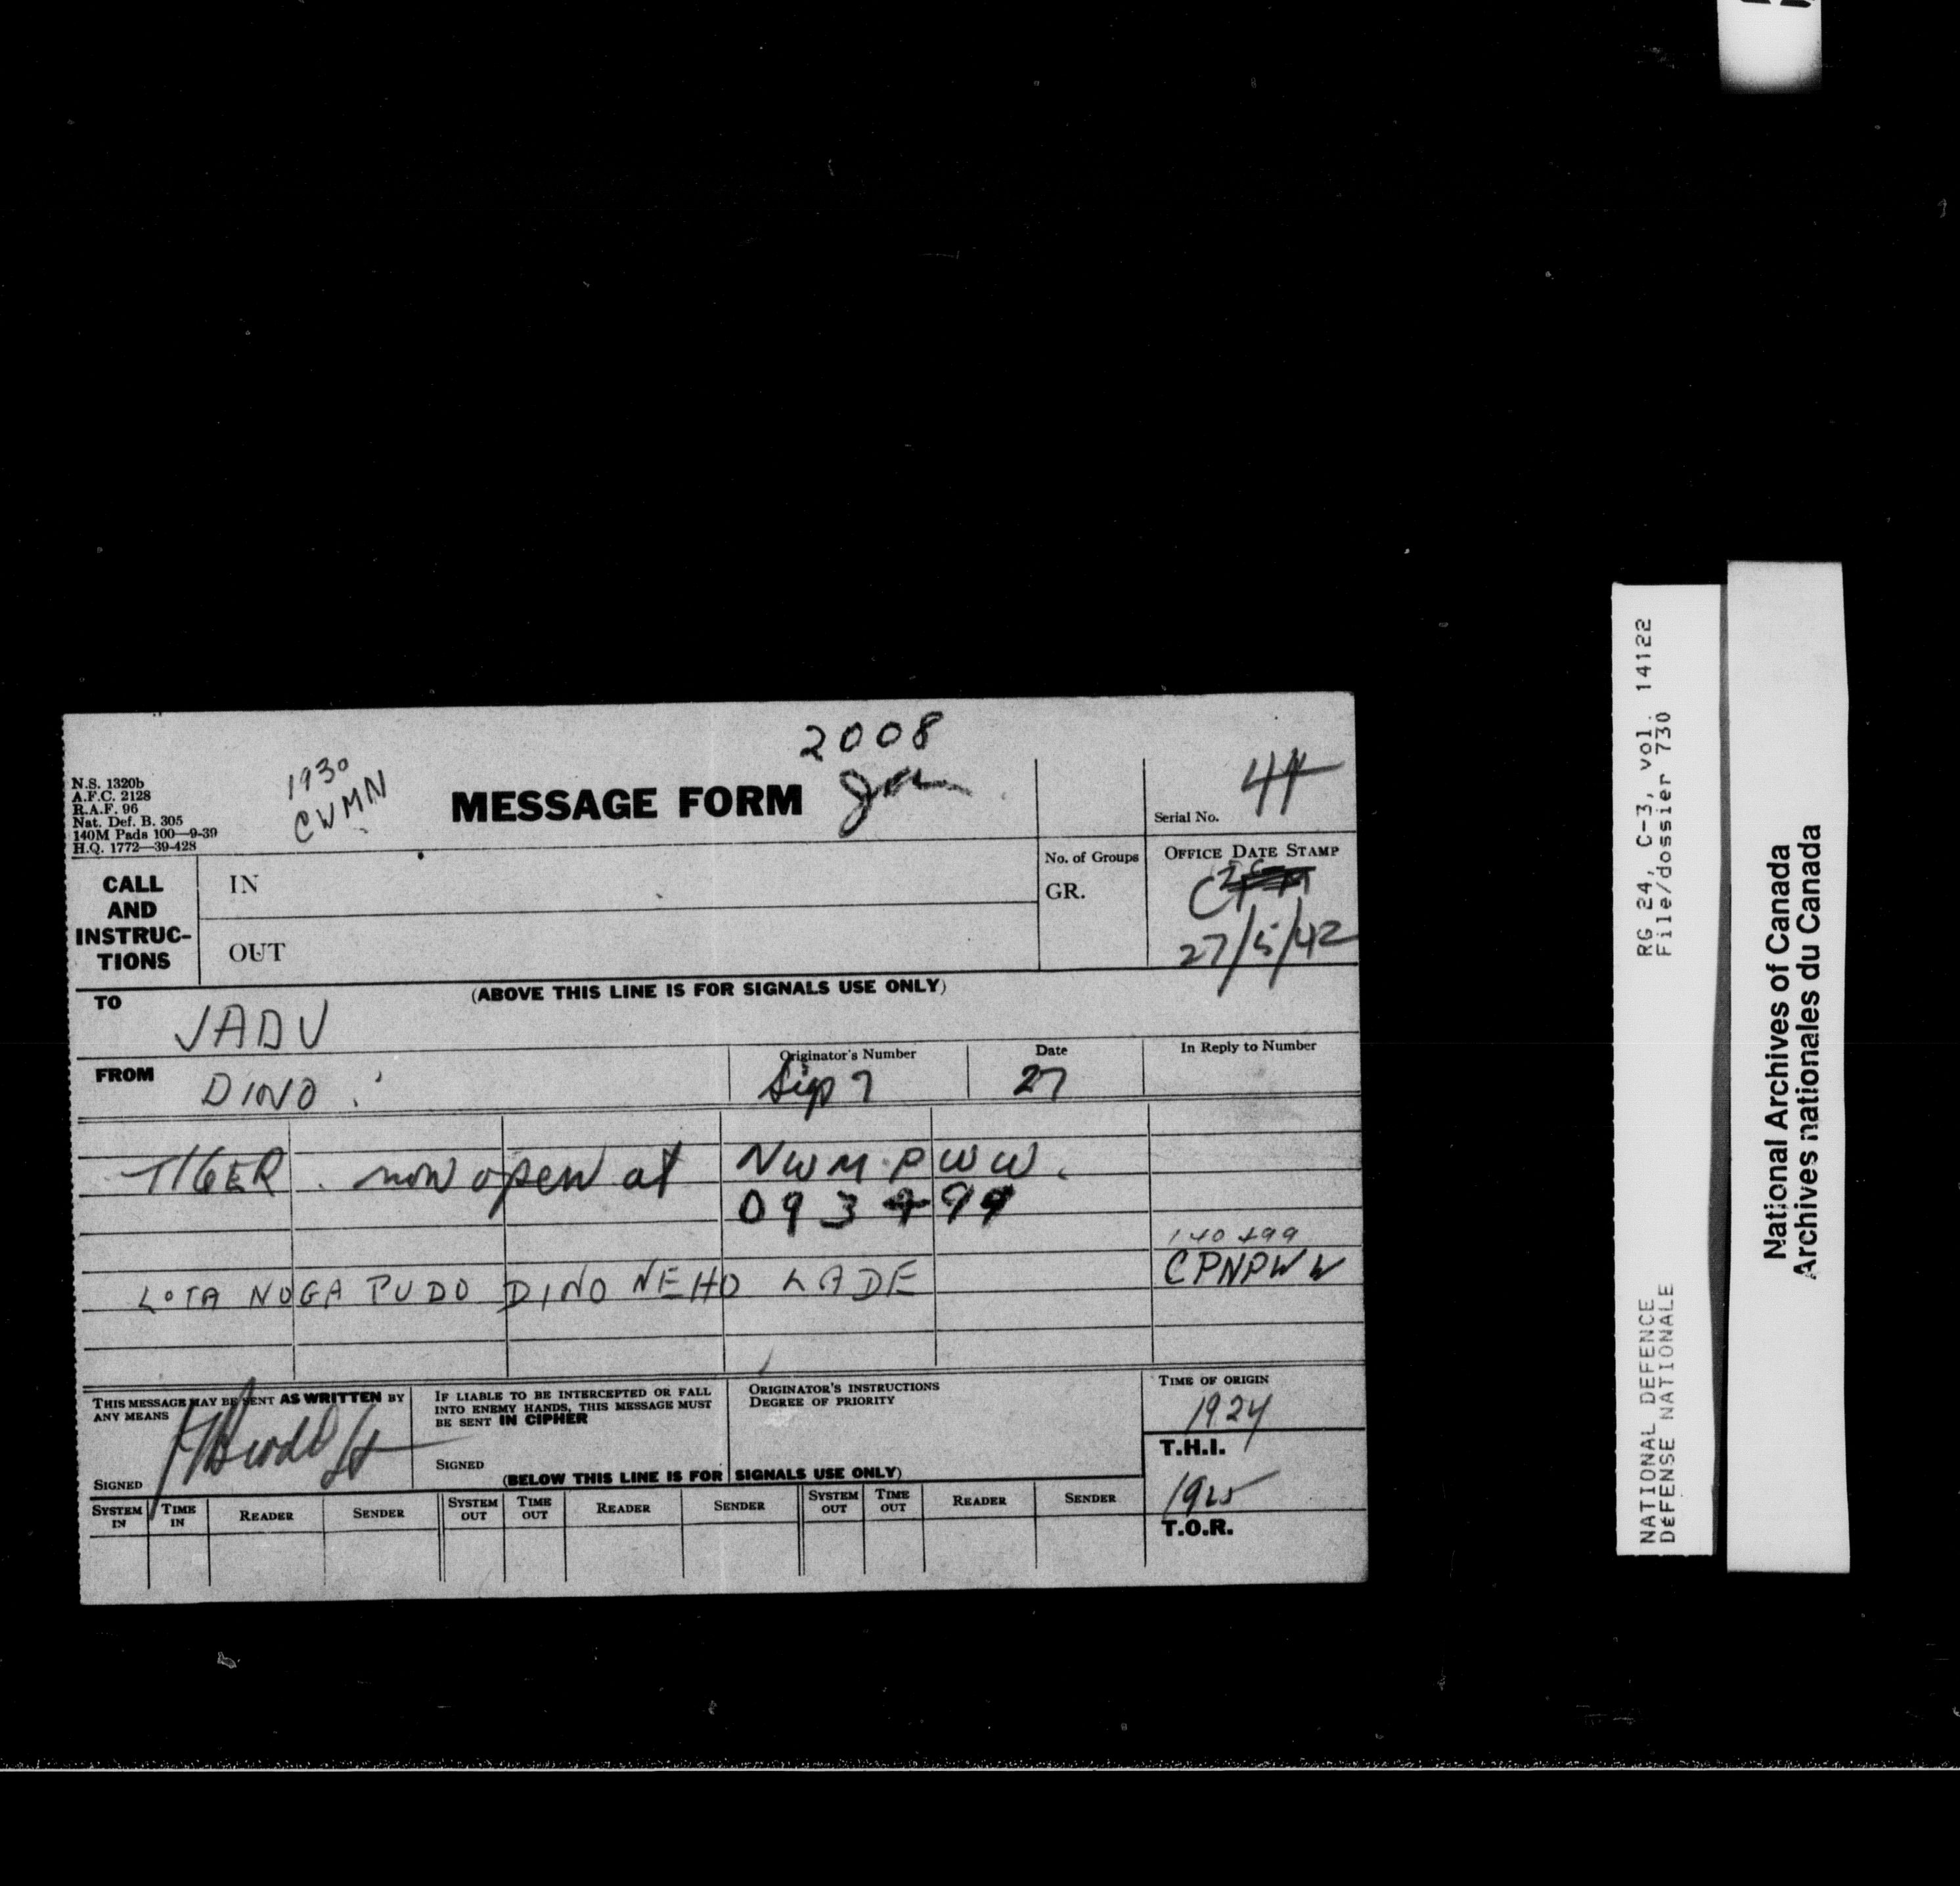 2008
1930
CWMN
N.S. 1320b
A.F.C. 2128
R.A.F. 96
Nat. Def. B. 305
140M Pads 100—9-39
H.Q. 1772—39-428
MESSAGE FORM
Serial No. 44
CALL AND INSTRUC-TIONS
IN
OUT
No. of Groups
GR.
OFFICE DATE STAMP
27/5/42
(ABOVE THIS LINE IS FOR SIGNALS USE ONLY)
TO JADU
FROM DINO
Originator's Number
Sig 7
Date
27
In Reply to Number
TIGER . now open at NWM PWW.
093 499
140 499
LOTA NOGA PUDO DINO NEHO LADE CPNPWW
THIS MESSAGE MAY BE SENT AS WRITTEN BY ANY MEANS
SIGNED
IF LIABLE TO BE INTERCEPTED OR FALL INTO ENEMY HANDS, THIS MESSAGE MUST BE SENT IN CIPHER
SIGNED
ORIGINATOR'S INSTRUCTIONS
DEGREE OF PRIORITY
TIME OF ORIGIN
1924
T.H.I.
1925
T.O.R.
(BELOW THIS LINE IS FOR SIGNALS USE ONLY)
SYSTEM IN TIME IN READER SENDER SYSTEM OUT TIME OUT READER SENDER SYSTEM OUT TIME OUT READER SENDER
NATIONAL DEFENCE RG 24, C-3, vol. 14122
DÉFENSE NATIONALE File/dossier 730
National Archives of Canada
Archives nationales du Canada